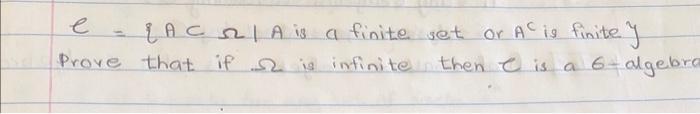 e = {A ⊂ Ω | A is a finite set or Aᶜ is finite}
Prove that if Ω is infinite then τ is a 6-algebra